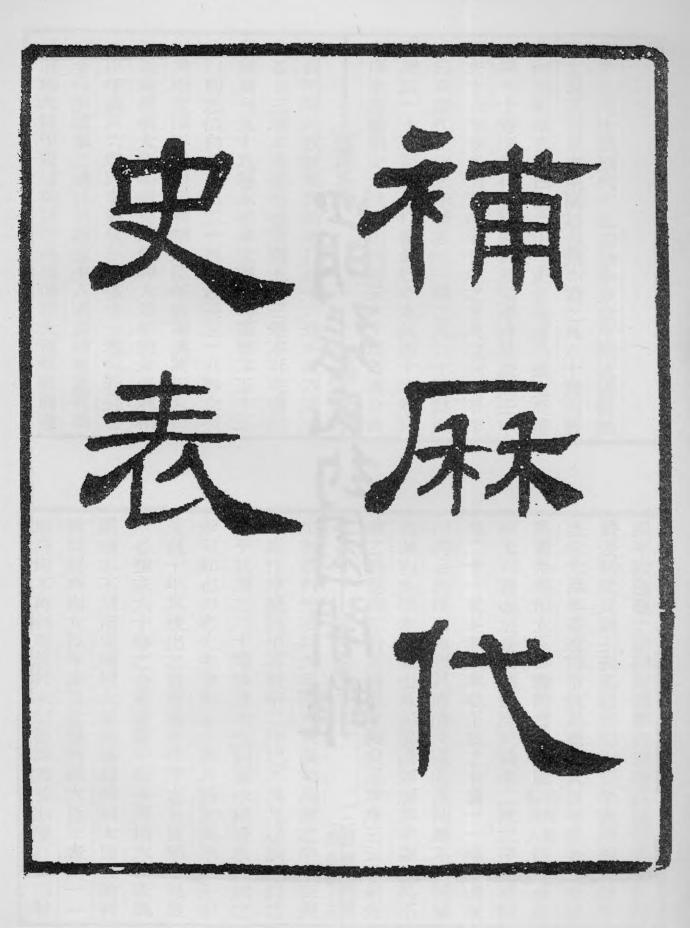 補厤代
史表